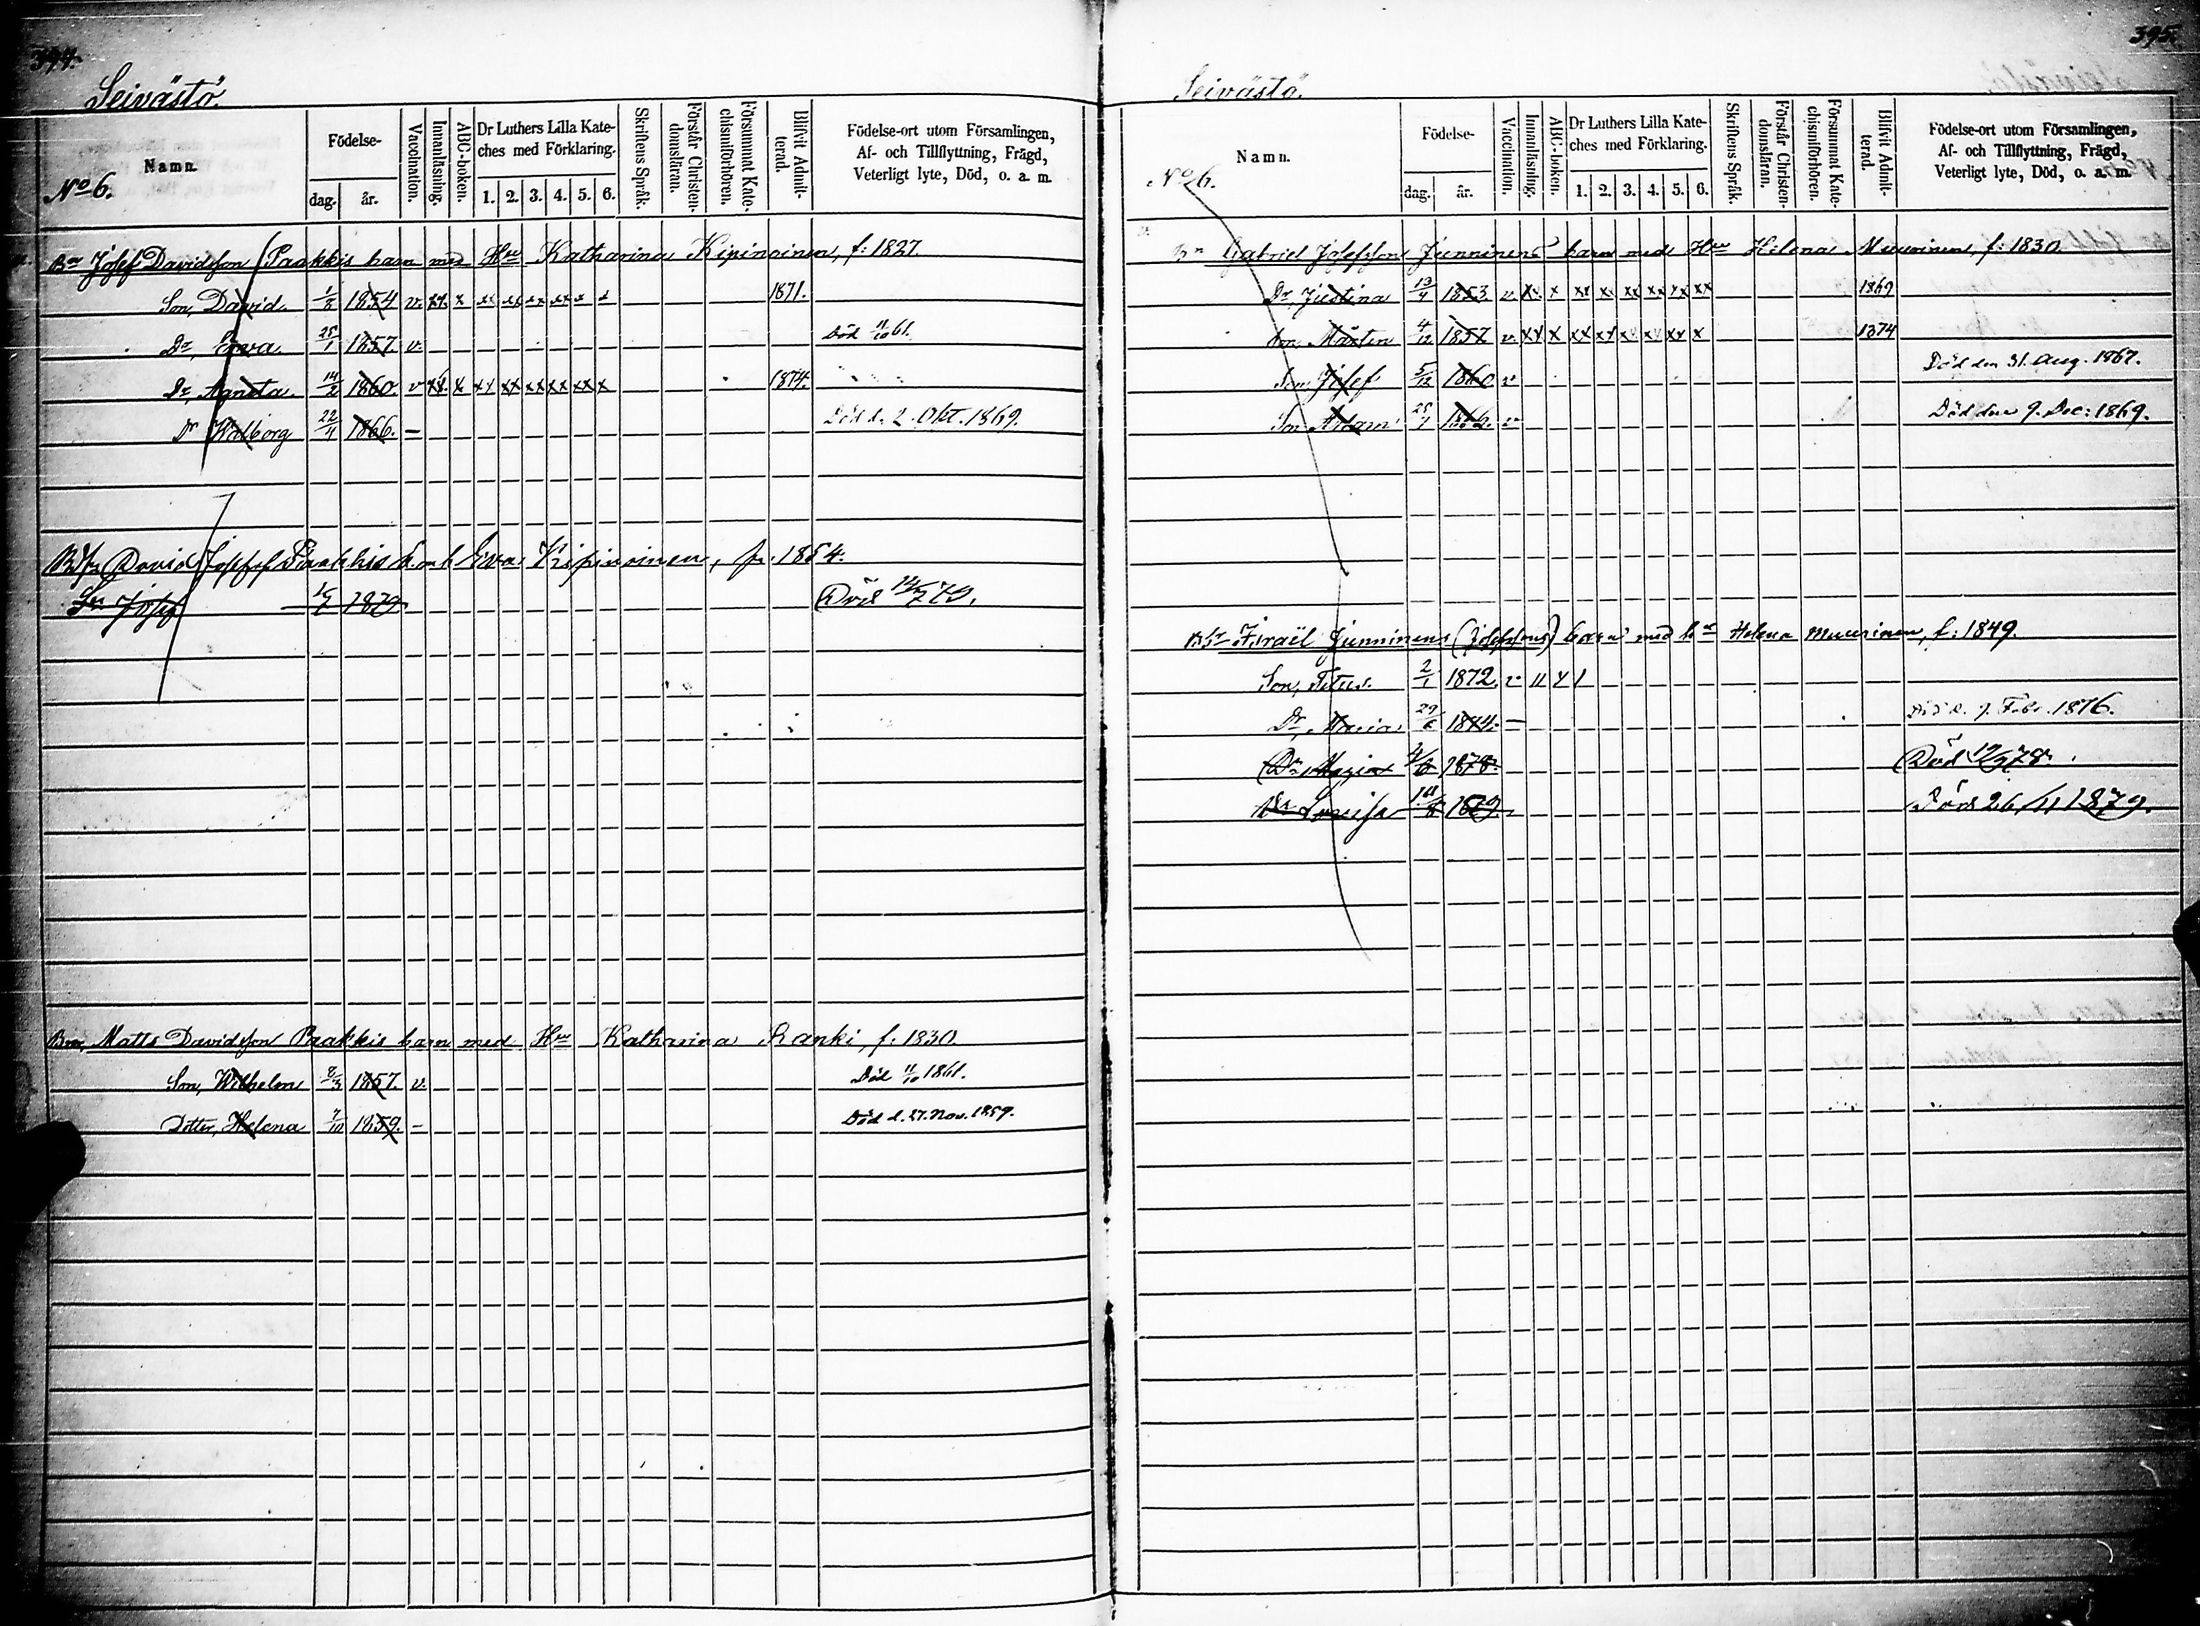 394.
Seivästö.
Namn.
No 6.
Födelse-
dag. år.
Vaccination.
Innanläsning.
ABC-boken.
Dr Luthers Lilla Kate-
ches med Förklaring.
1. 2. 3. 4. 5. 6.
Skriftens Språk.
Förstår Christen-
domsläran.
Försummat Kate-
chismiförhören.
Blifvit Admit-
terad.
Födelse-ort utom Församlingen,
Af- och Tillflyttning, Frägd,
Veterligt lyte, Död, o. a. m.
Bn Josef Davidsson Paakkis barn med Hru Katharina Kipinoinen, f: 1827.
Son, David. 1854 v. xx x xx xx xx xx x x 1871.
Dr, Ewa 25/1 1857. v. Död 11/10 61.
Dr, Agneta 14/2 1860. v xx x xx xx xx xx xx x 1874.
Dr Walborg 22/4 1866. – Död d. 2. Okt. 1869.
David Josefsf Paakkis b. m. h. Eva Kipinoinen, f. 1854.
Sn Josef 1879 Död 14/7 79.
Bn, Matts Davidsson Paakkis barn med Hru Katharina Ranki, f. 1830.
Son, Wilhelm 8/3 1857. v. Död 11/10 1861.
Dotter, Helena 7/10 1859. – Död d. 27. Nov. 1859.
395.
Seivästö.
Namn.
No 6.
Födelse-
dag. år.
Vaccination.
Innanläsning.
ABC-boken.
Dr Luthers Lilla Kate-
ches med Förklaring.
1. 2. 3. 4. 5. 6.
Skriftens Språk.
Förstår Christen-
domsläran.
Försummat Kate-
chismiförhören.
Blifvit Admit-
terad.
Födelse-ort utom Församlingen,
Af- och Tillflyttning, Frägd,
Veterligt lyte, Död, o. a. m.
Bn Gabriel Josefsson Junninens barn med Hru Helena Muurinen, f: 1830
Dr, Justina 1853. v xx x xx x xx xx xx xx 1869
Son Mårten 4/12 1857 v. xx x xx xx xx xx xx x 1874
Son Josef 5/12 1860 v Död den 31. Aug. 1867.
Son Adam 1862. v Död den 9. Dec: 1869.
Israël Junninens (Josefssons) barn med Helena Muurinen, f: 1849.
Son, Titus. 2/1 1872. v
Dr, Maria 29/6 1874. – Död d. 7. Febr. 1876.
Dr Maria 1878. Död
Dr Lovisa 1879. Död 26/11 1879.